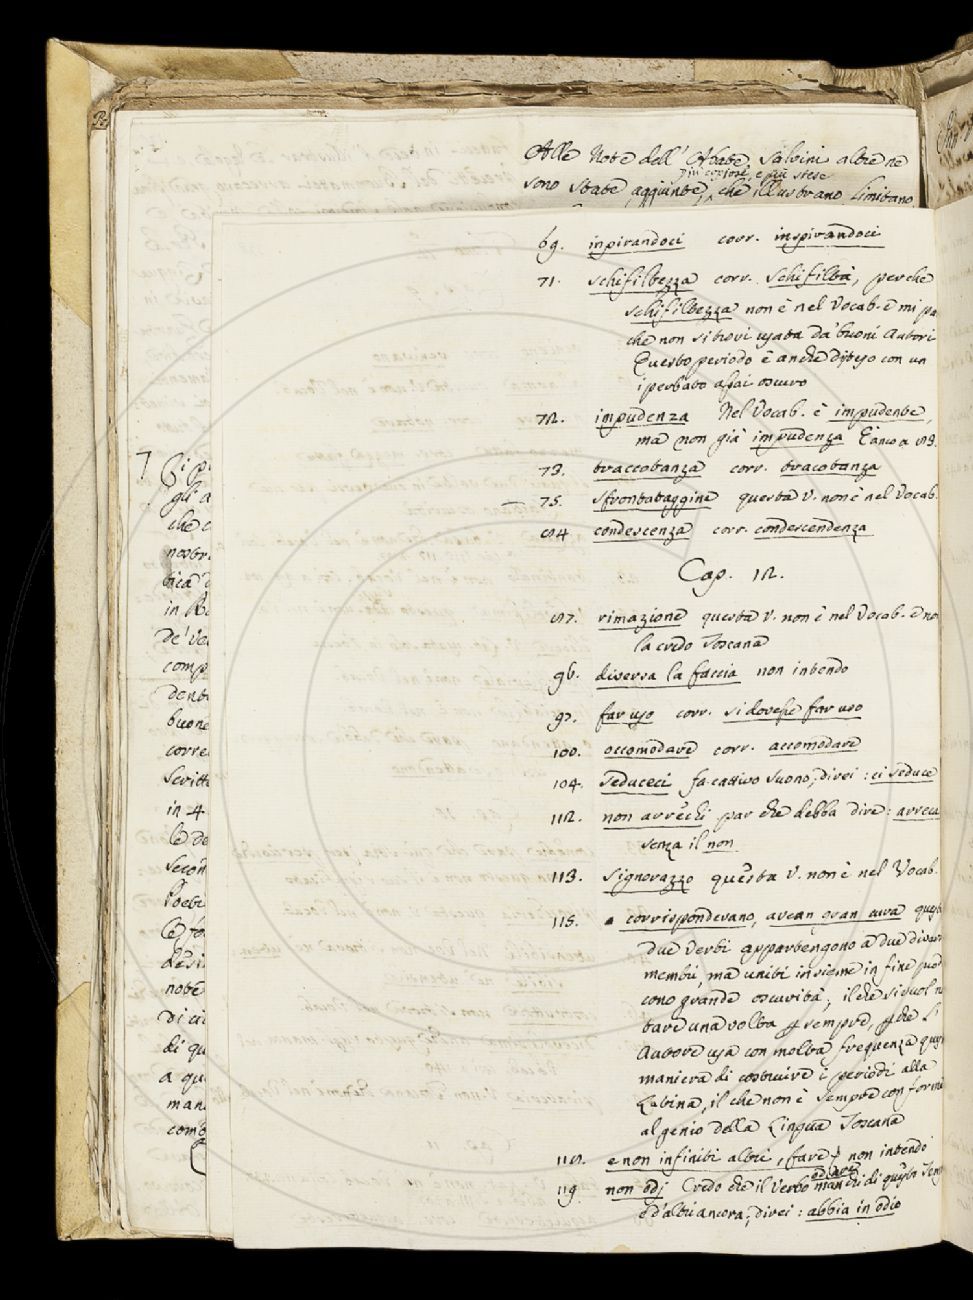 Alle Note dell' Abate Salvini altre ne
più copiose, e più stese
sono state aggiunte, che illustrano
69. inpirandoci corr. inspirandoci
71. schifiltezza corr. schifiltà, perche
schifiltezza non è nel Vocab. e mi pa
che non si trovi usata da' buoni Autori
Questo periodo è anche disteso con un
iperbato assai oscuro
72. impudenza Nel Vocab. è impudente,
ma non già impudenza
73. traccotanza corr. tracotanza
75. sfrontataggine questa V. non è nel Vocab.
condescenza corr. condescendenza
Cap. 12.
rimazione questa V. non è nel Vocab. e non
la credo Toscana
96. diversa la faccia non intendo
97. far uso corr. si dovesse far uso
100. occomodare corr. accomodare
104. seduceci fa cattivo suono, direi: ci seduce
112. non arrechi par che debba dire: arreca
senza il non
113. Signorazzo questa V. non è nel Vocab.
115. corrispondevano, avean gran cura questi
due verbi appartengono a due diversi
membri, ma uniti insieme in fine prod
cono grande oscurità, il che si vuol no
tare una volta per sempre, perche l'
Autore usa con molta frequenza questa
maniera di costruire i periodi alla
Latina, il che non è sempre conforme
al genio della Lingua Toscana
e non infiniti altri, fare non intendo
odiare
119. non odj Credo che il verbo manchi di questo Tem
e d'altri ancora, direi: abbia in odio
Si p
gli a
che c
nostr
tica d
in Ro
de' Vo
comp
dent
buone
corre
Scritt
in 4
Le de
Secon
Poeti
Le fo
desi
note
di ci
di qu
a qu
man
come